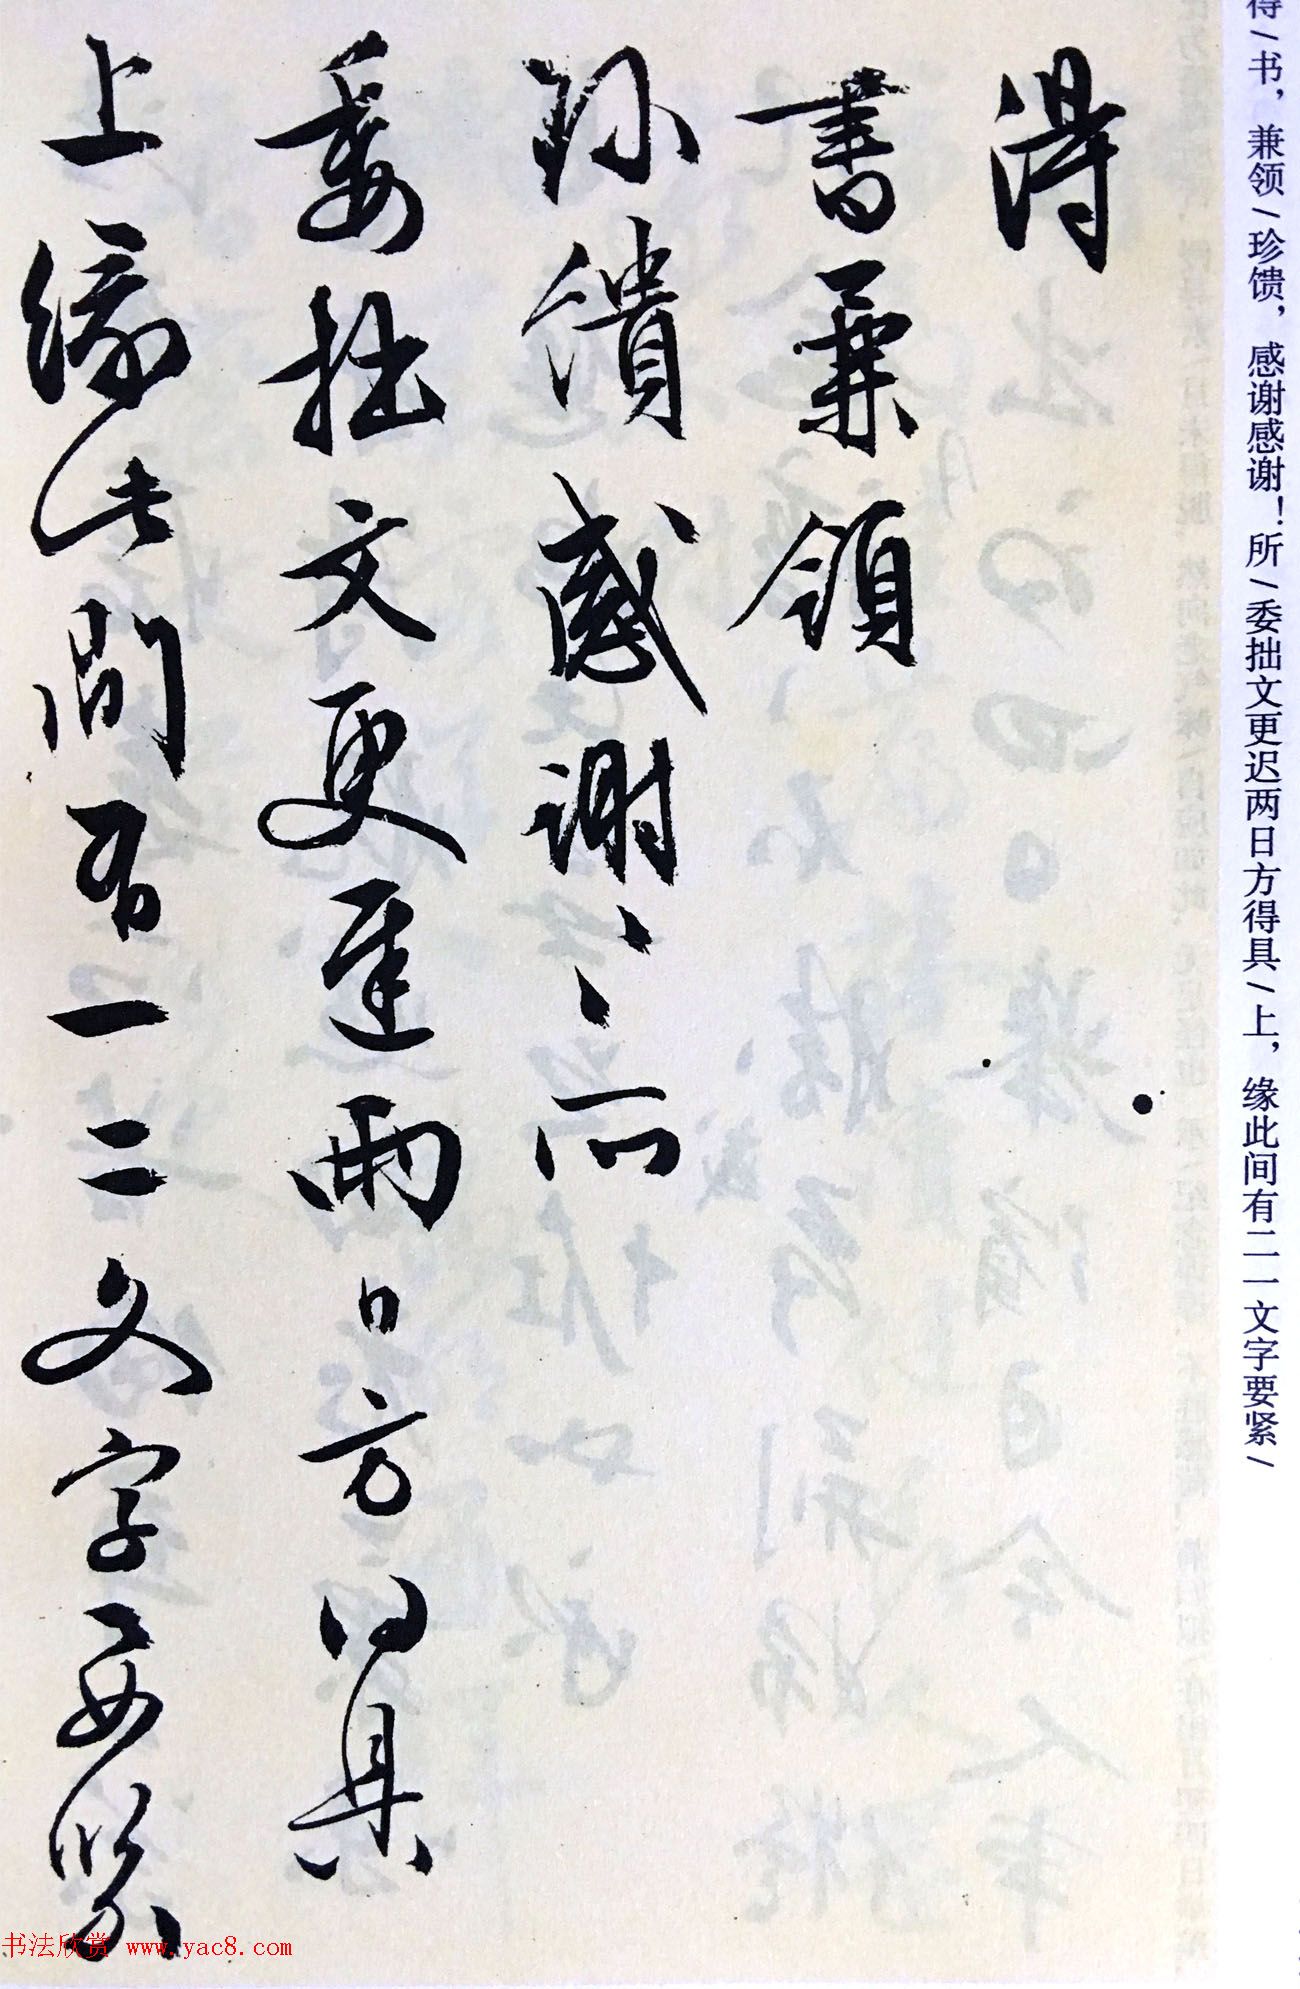 得/书，兼领/珍馈，感谢感谢！所/委拙文更迟两日方得具/上，缘此间有二一文字要紧/
得
書兼領
珎饋感謝〻所
委拙文更遲兩日方得具
上緣此間有一二文字要緊
书法欣赏 www.yac8.com